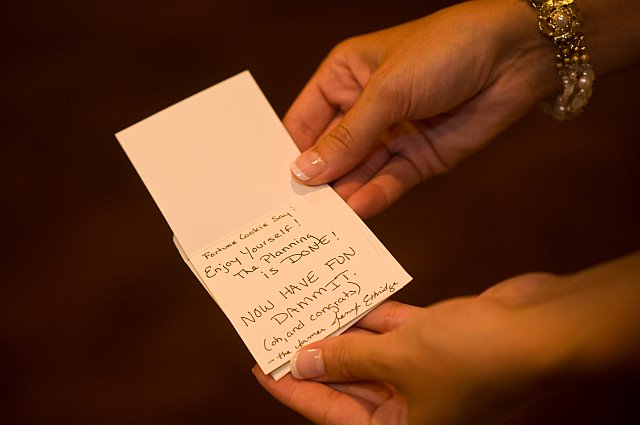 Fortune Cookie Say:
Enjoy Yourself!
The Planning
is DONE!
NOW HAVE FUN
DAMMIT.
(oh, and congrats)
- the former Etheridge